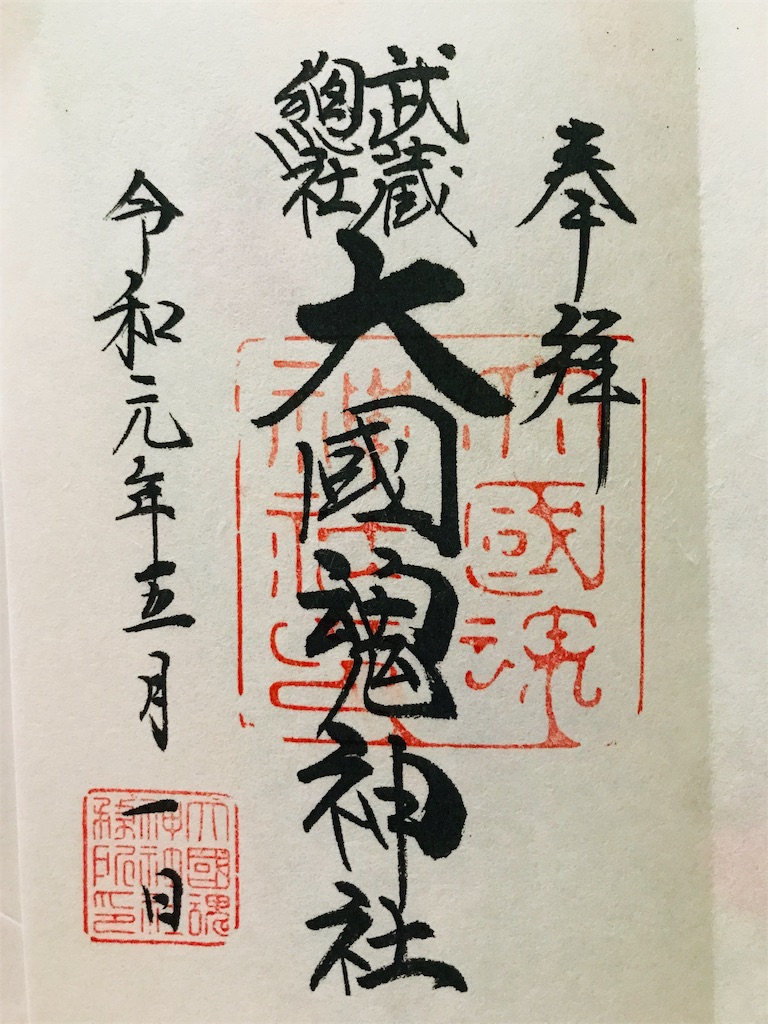 奉拝
武蔵
總社
大國魂神社
令和元年五月一日
大國魂
神社
大國魂
神社社
務所印